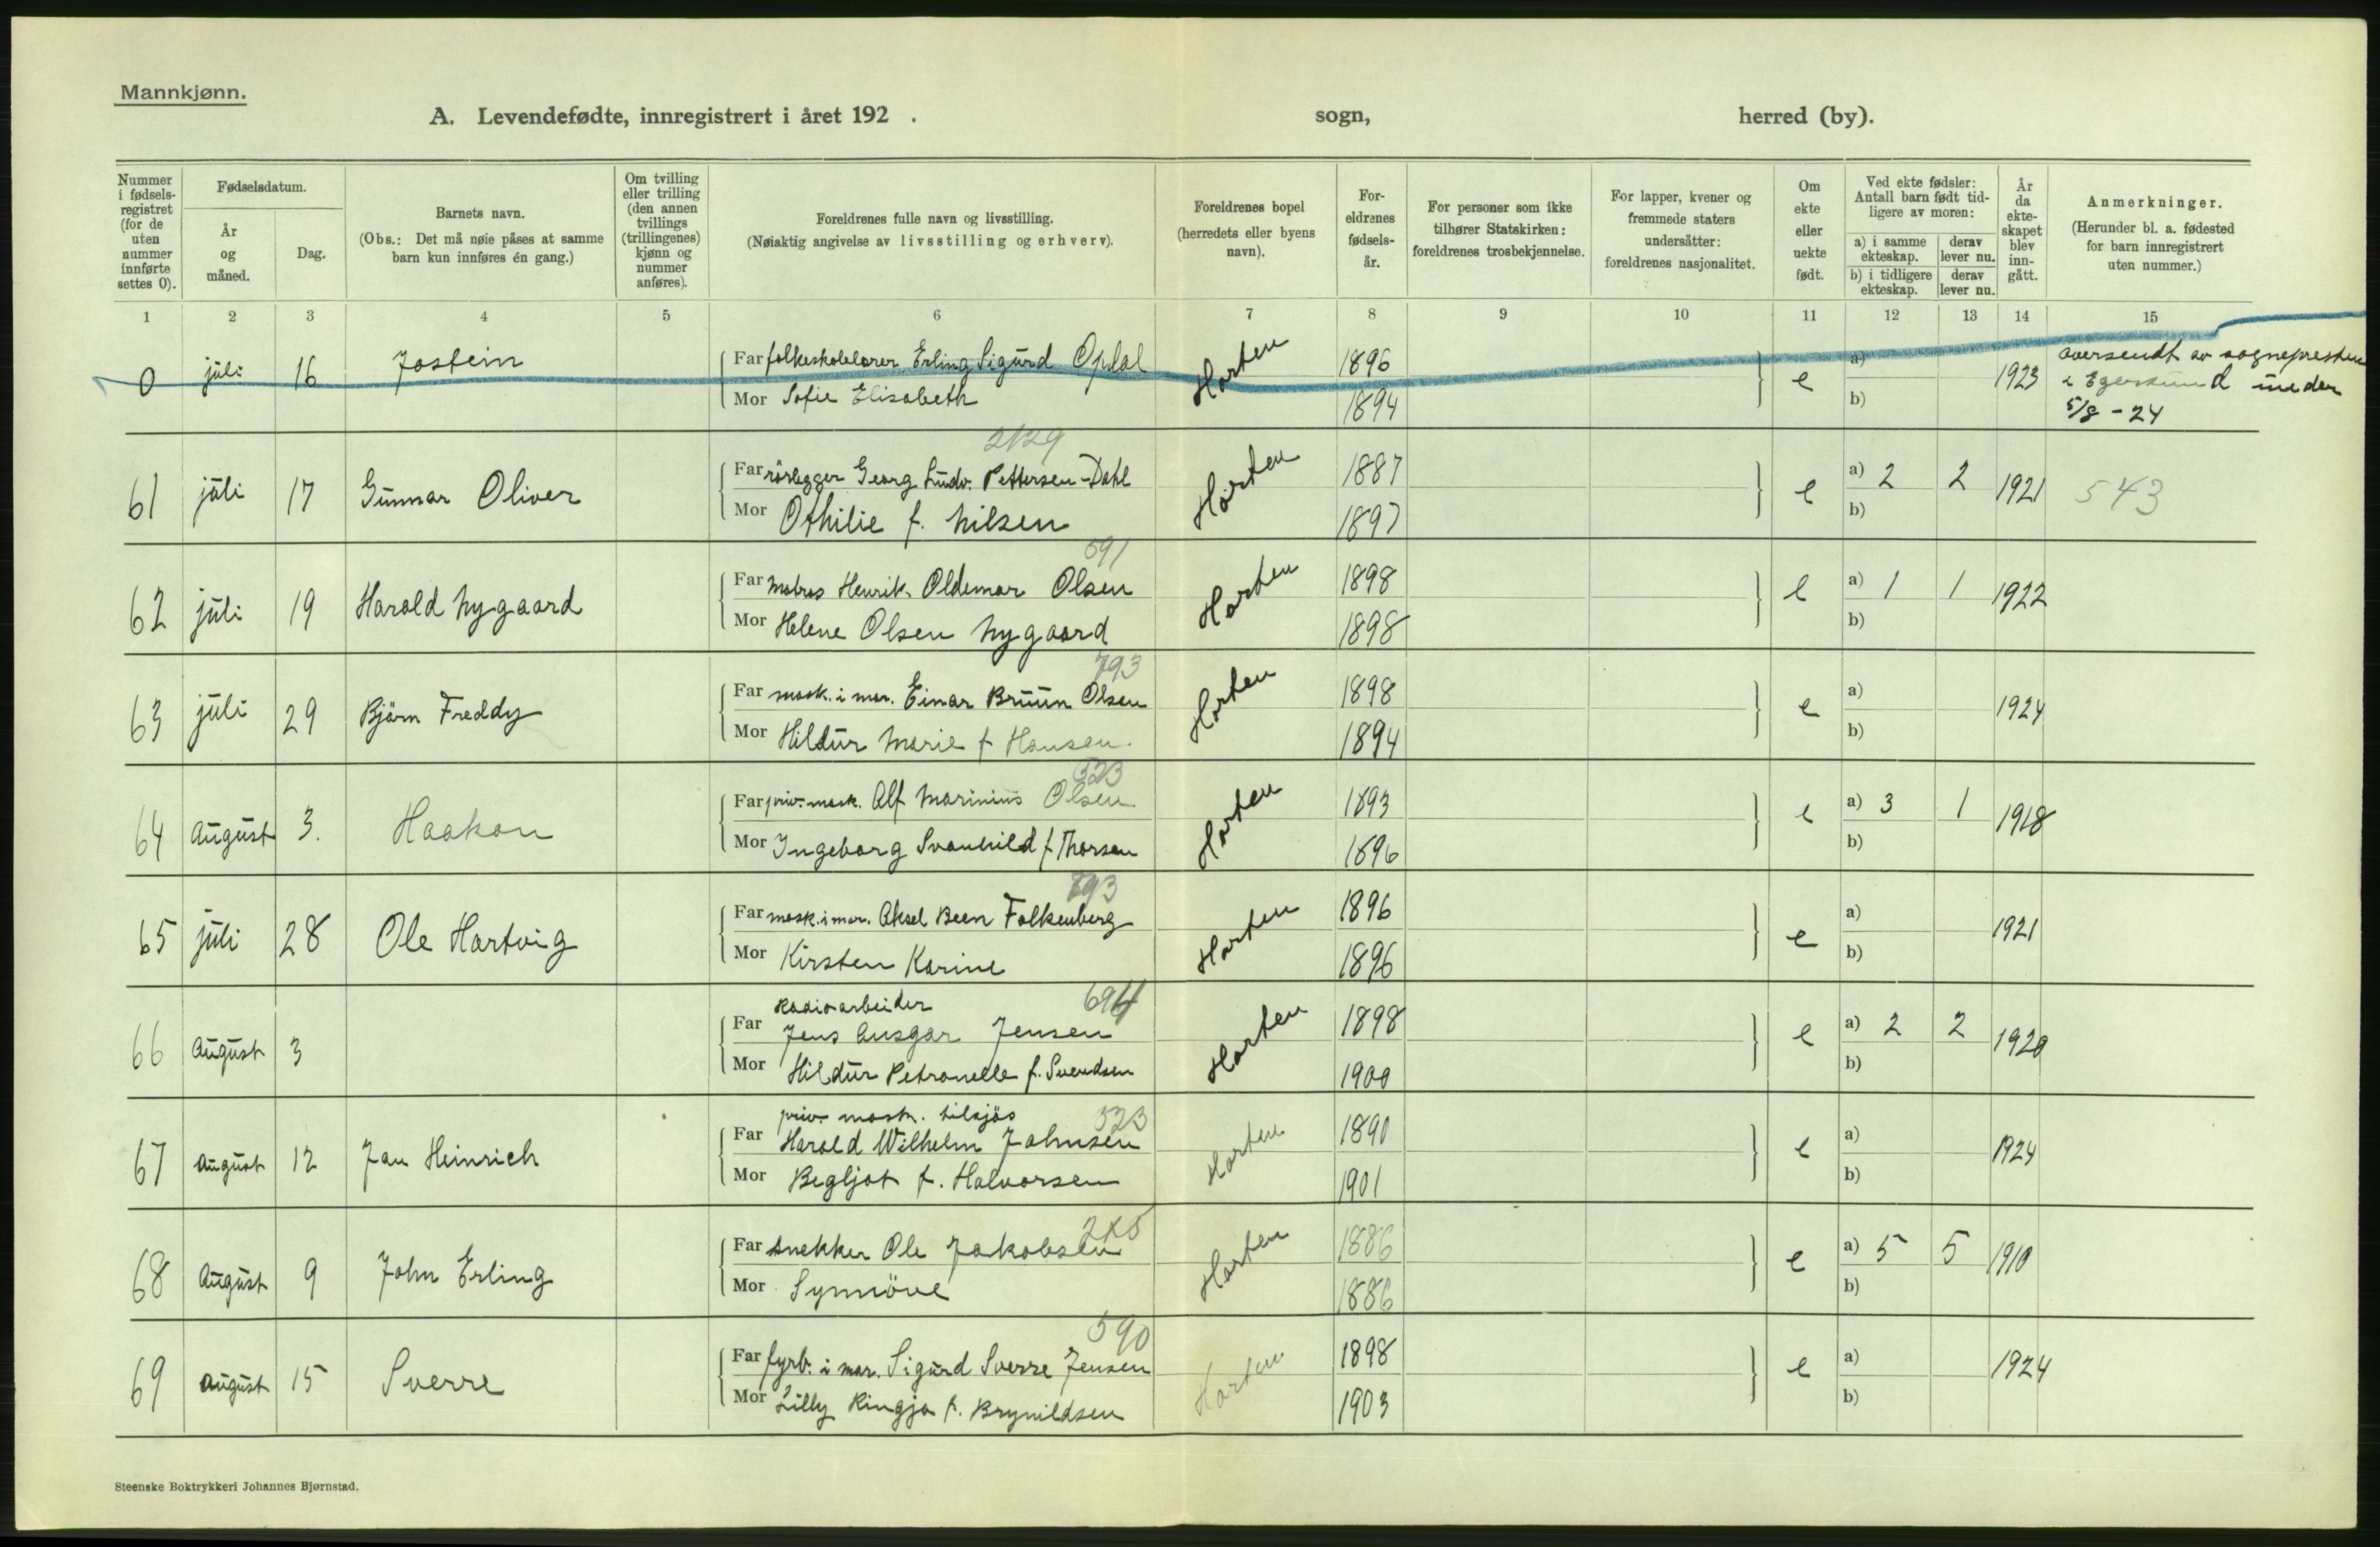 Mannkjønn.
A. Levendefødte, innregistrert i året 192 . sogn, herred (by).
Nummer i fødsels-registret (for de uten nummer innførte settes 0).
Fødselsdatum.
År og måned.
Dag.
Barnets navn.
(Obs.: Det må nøie påses at samme barn kun innføres én gang.)
Om tvilling eller trilling (den annen tvillings (trillingenes) kjønn og nummer anføres).
Foreldrenes fulle navn og livsstilling.
(Nøiaktig angivelse av livsstilling og erhverv).
Foreldrenes bopel (herredets eller byens navn).
For-eldrenes fødsels-år.
For personer som ikke tilhører Statskirken: foreldrenes trosbekjennelse.
For lapper, kvener og fremmede staters undersåtter: foreldrenes nasjonalitet.
Om ekte eller uekte født.
Ved ekte fødsler: Antall barn født tid-ligere av moren:
a) i samme ekteskap.
derav lever nu.
b) i tidligere ekteskap.
derav lever nu.
År da ekte-skapet blev inn-gått.
Anmerkninger.
(Herunder bl. a. fødested for barn innregistrert uten nummer.)
1 2 3 4 5 6 7 8 9 10 11 12 13 14 15
0 juli 16 Jostein Far folkeskolelærer Erling Sigurd Opdal Horten 1896 e a) 1923 oversendt av sognepresten
Mor Sofie Elisabeth 1894 b) i Egersund
5/8 - 24
2129
61 juli 17 Gunnar Oliver Far rörlegger Georg Ludv. Pettersen-Dahl Horten 1887 e a) 2 2 1921 543
Mor Othilie f. Nilsen 1897 b)
591
62 juli 19 Harald Nygaard Far Matros Henrik Oldemar Olsen Horten 1898 e a) 1 1 1922
Mor Helene Olsen Nygaard 1898 b)
793
63 juli 29 Björn Freddy Far mask. i mar. Einar Bruun Olsen Horten 1898 e a) 1924
Mor Hildur Marie f Hansen. 1894 b)
523
64 August 3. Haakon Far priv. mask. Alf Marinius Olsen Horten 1893 e a) 3 1 1918
Mor Ingeborg Svanhild f Thorsen 1896 b)
793
65 juli 28 Ole Hartvig Far mask. i mar. Aksel Been Falkenberg Horten 1896 e a) 1921
Mor Kirsten Karine 1896 b)
Radioarbeider 694
66 August 3 Far Jens Ansgar Jensen Horten 1898 e a) 2 2 1920
Mor Hildur Petronelle f. Svendsen 1900 b)
priv. mask. tilsjös 523
67 August 12 Jan Heinrich Far Harald Wilhelm Johnsen Horten 1890 e a) 1924
Mor Begljot f. Halvorsen 1901 b)
68 August 9 John Erling Far snekker Ole Jakobsen Horten 1886 e a) 5 5 1910
Mor Synnöve 1886 b)
590
69 August 15 Sverre Far fyrb. i mar. Sigurd Sverre Jensen Horten 1898 e a) 1924
Mor Lilly Ringja f. Brynildsen 1903 b)
Steenske Boktrykkeri Johannes Bjørnstad.